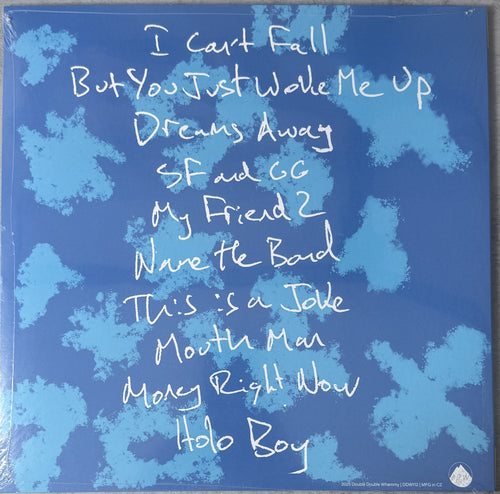 I Can't Fall
But You Just Woke Me Up
Dreams Away
SF and GG
My Friend 2
Name the Band
This is a Joke
Mouth Man
Money Right Now
Holo Boy
DDW
2025 Double Double Whammy | DDW112 | MFG in CZ